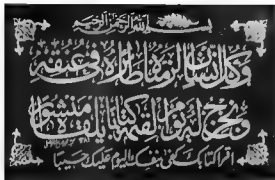 بسم الله الرحمن الرحيم
وكل إنسان ألزمناه طائره في عنقه
ونخرج له يوم القيمة كتابا يلقاه منشورا
اقرأ كتابك كفى بنفسك اليوم عليك حسيبا